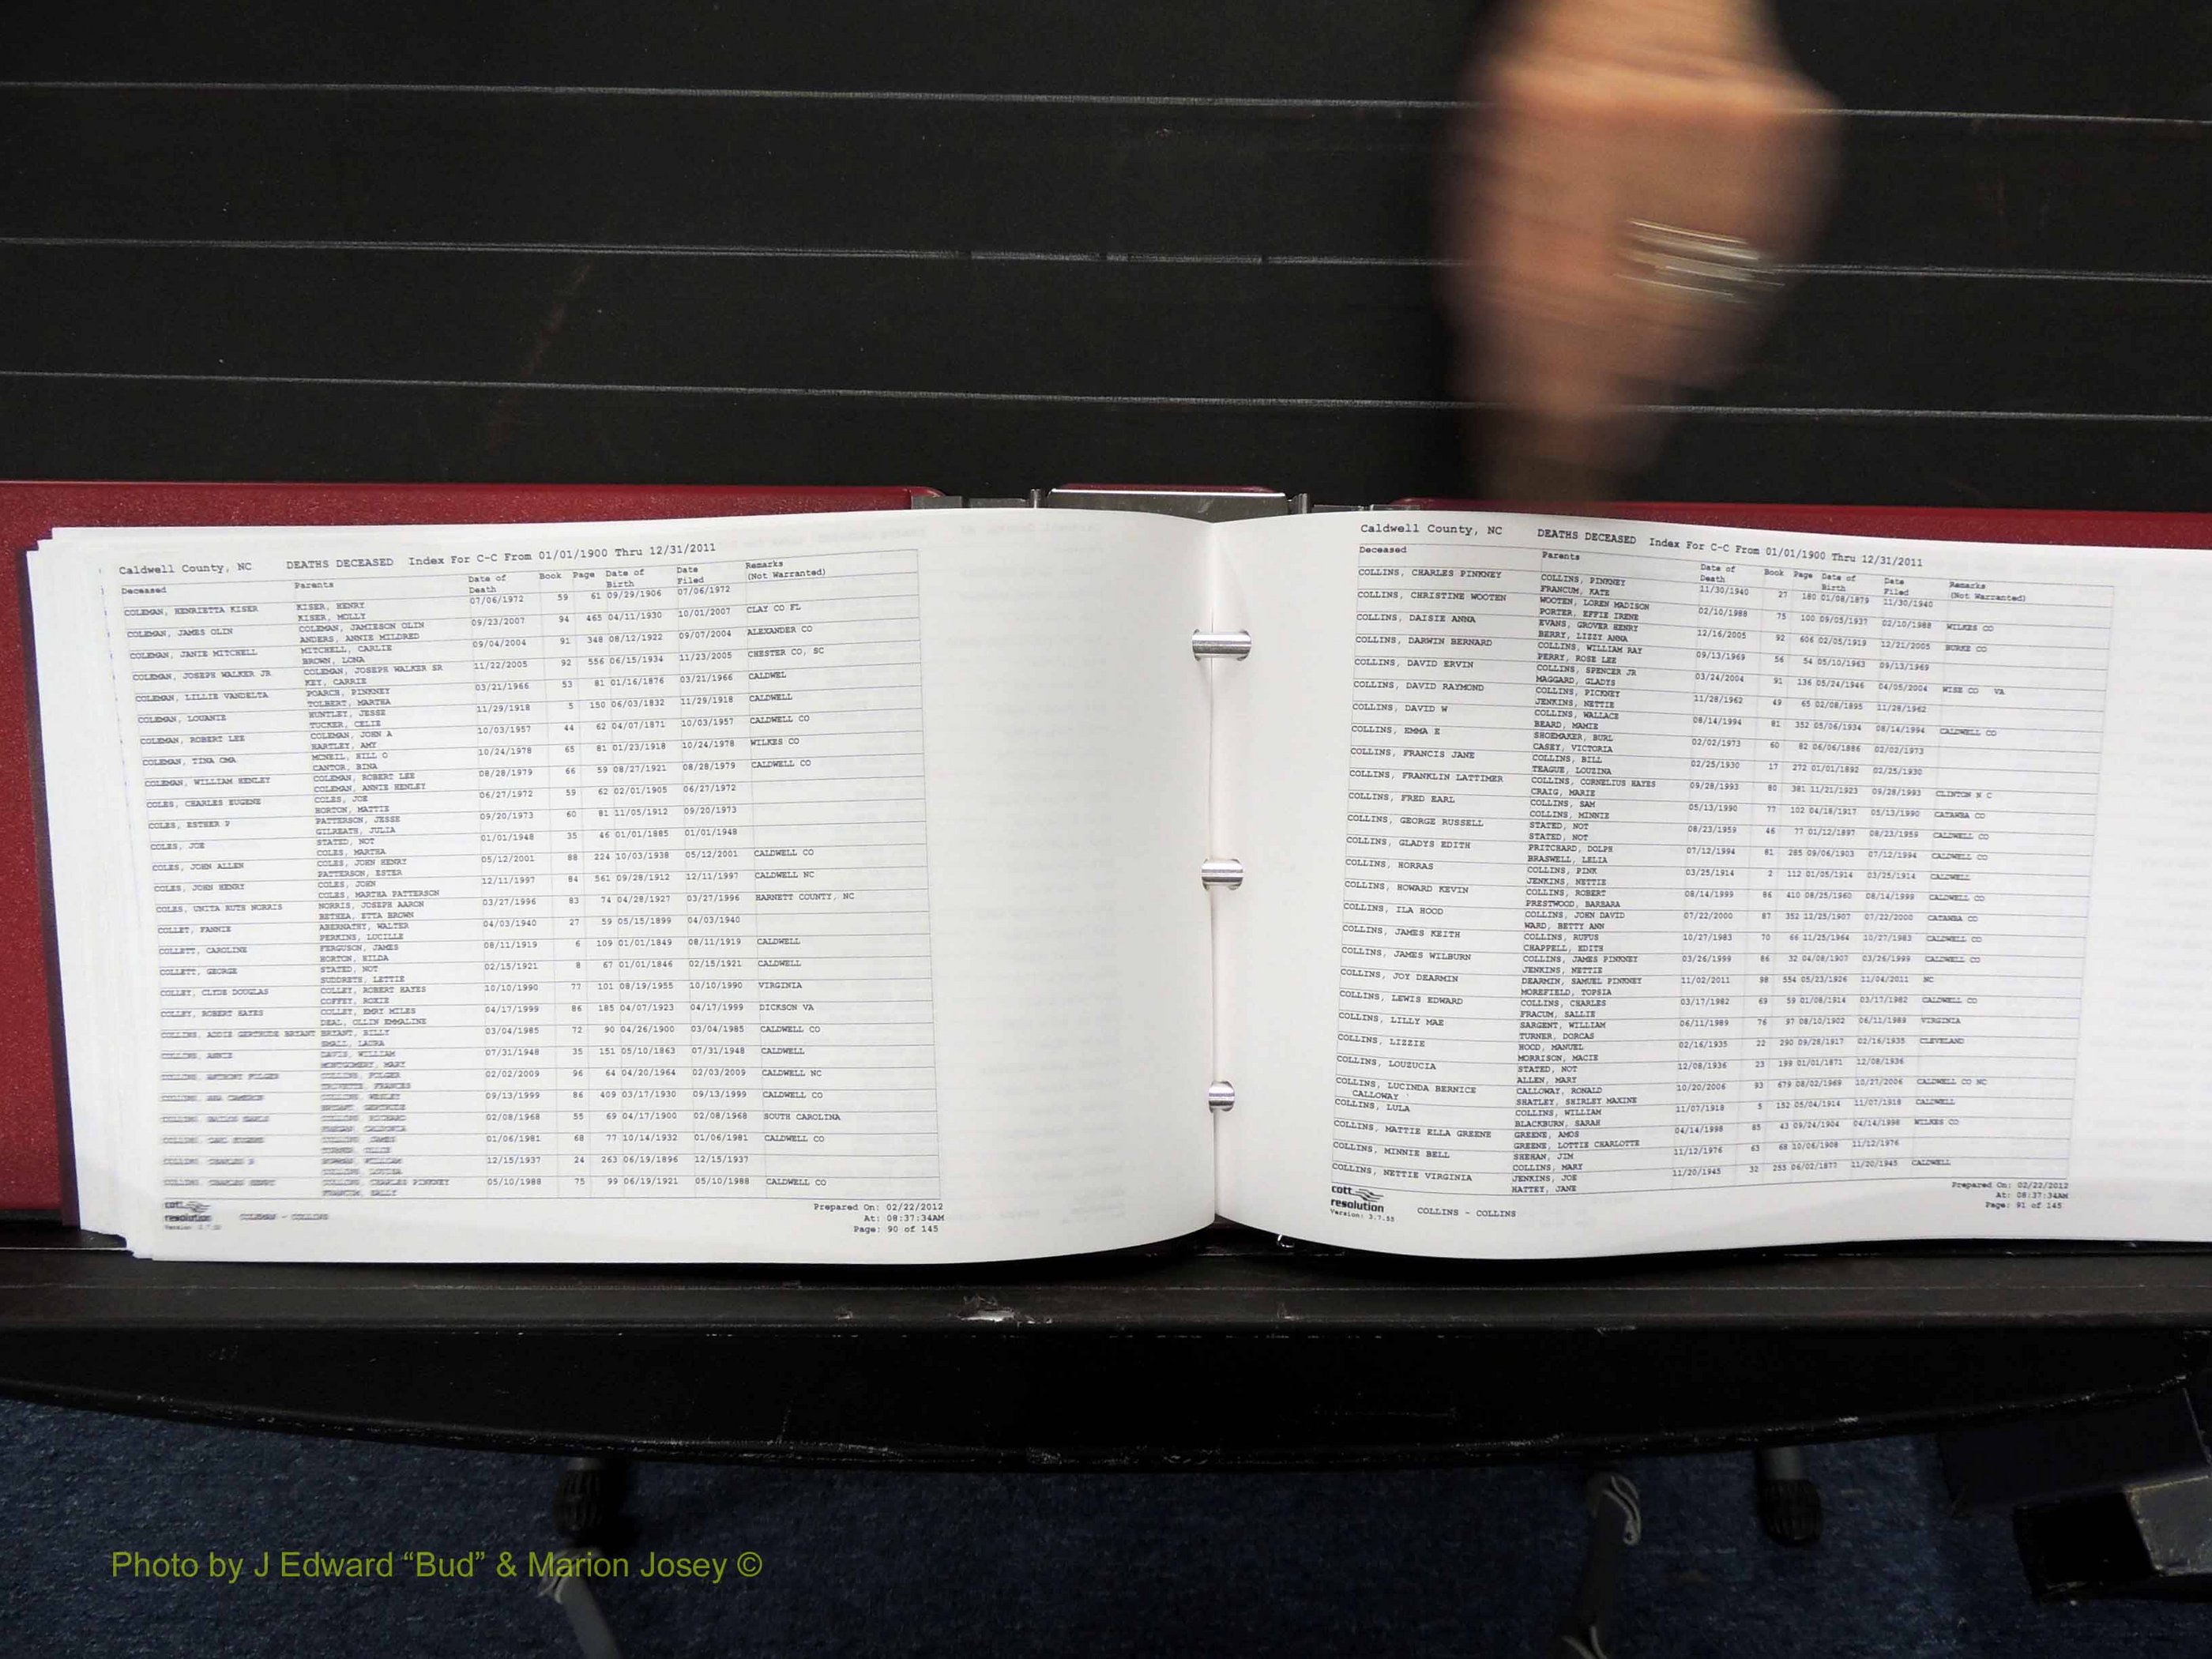 Caldwell County, NC DEATHS DECEASED Index For C-C From 01/01/1900 Thru 12/31/2011
Deceased Parents Date of Death Book Page Date of Birth Date Filed Remarks (Not Warranted)
COLEMAN, HENRIETTA KISER KISER, HENRY 07/06/1972 59 61 09/29/1906 07/06/1972
KISER, MOLLY
COLEMAN, JAMES OLIN COLEMAN, JAMIESON OLIN 09/23/2007 94 465 04/11/1930 10/01/2007 CLAY CO FL
ANDERS, ANNIE MILDRED
COLEMAN, JANIE MITCHELL MITCHELL, CARLIE 09/04/2004 91 348 08/12/1922 09/07/2004 ALEXANDER CO
BROWN, LONA
COLEMAN, JOSEPH WALKER JR COLEMAN, JOSEPH WALKER SR 11/22/2005 92 556 06/15/1934 11/23/2005 CHESTER CO, SC
KEY, CARRIE
COLEMAN, LILLIE VANDELTA POARCH, PINKNEY 03/21/1966 53 81 01/16/1876 03/21/1966 CALDWEL
TOLBERT, MARTHA
COLEMAN, LOUANIE HUNTLEY, JESSE 11/29/1918 5 150 06/03/1832 11/29/1918 CALDWELL
TUCKER, CELIE
COLEMAN, ROBERT LEE COLEMAN, JOHN A 10/03/1957 44 62 04/07/1871 10/03/1957 CALDWELL CO
HARTLEY, AMY
COLEMAN, TINA OMA MCNEIL, HILL O 10/24/1978 65 81 01/23/1918 10/24/1978 WILKES CO
CANTOR, BINA
COLEMAN, WILLIAM HENLEY COLEMAN, ROBERT LEE 08/28/1979 66 59 08/27/1921 08/28/1979 CALDWELL CO
COLEMAN, ANNIE HENLEY
COLES, CHARLES EUGENE COLES, JOE 06/27/1972 59 62 02/01/1905 06/27/1972
HORTON, MATTIE
COLES, ESTHER P PATTERSON, JESSE 09/20/1973 60 81 11/05/1912 09/20/1973
GILREATH, JULIA
COLES, JOE STATED, NOT 01/01/1948 35 46 01/01/1885 01/01/1948
COLES, MARTHA
COLES, JOHN ALLEN COLES, JOHN HENRY 05/12/2001 88 224 10/03/1938 05/12/2001 CALDWELL CO
PATTERSON, ESTER
COLES, JOHN HENRY COLES, JOHN 12/11/1997 84 561 09/28/1912 12/11/1997 CALDWELL NC
COLES, MARTHA PATTERSON
COLES, UNITA RUTH NORRIS NORRIS, JOSEPH AARON 03/27/1996 83 74 04/28/1927 03/27/1996 HARNETT COUNTY, NC
BETHEA, ETTA BROWN
COLLET, FANNIE ABERNATHY, WALTER 04/03/1940 27 59 05/15/1899 04/03/1940
PERKINS, LUCILLE
COLLETT, CAROLINE FERGUSON, JAMES 08/11/1919 6 109 01/01/1849 08/11/1919 CALDWELL
HORTON, HILDA
COLLETT, GEORGE STATED, NOT 02/15/1921 8 67 01/01/1846 02/15/1921 CALDWELL
SUDDRETH, LETTIE
COLLEY, CLYDE DOUGLAS COLLEY, ROBERT HAYES 10/10/1990 77 101 08/19/1955 10/10/1990 VIRGINIA
COFFEY, ROXIE
COLLEY, ROBERT HAYES COLLEY, EMRY MILES 04/17/1999 86 185 04/07/1923 04/17/1999 DICKSON VA
DEAL, OLLIN EMMALINE
COLLINS, ADDIE GERTRUDE BRYANT BRYANT, BILLY 03/04/1985 72 90 04/26/1900 03/04/1985 CALDWELL CO
SMALL, LAURA
COLLINS, ANNIE DAVIS, WILLIAM 07/31/1948 35 151 05/10/1863 07/31/1948 CALDWELL
MONTGOMERY, MARY
COLLINS, ANTHONY FOLGER COLLINS, FOLGER 02/02/2009 96 64 04/20/1964 02/03/2009 CALDWELL NC
FRANCES
COLLINS, CAMERON COLLINS, WESLEY 09/13/1999 86 409 03/17/1930 09/13/1999 CALDWELL CO
BRYANT, GERTRUDE
COLLINS, COLLINS, 02/08/1968 55 69 04/17/1900 02/08/1968 SOUTH CAROLINA
COLLINS, CARL EUGENE COLLINS, JAMES 01/06/1981 68 77 10/14/1932 01/06/1981 CALDWELL CO
COLLINS, CHARLES WILLIAM 12/15/1937 24 263 06/19/1896 12/15/1937
COLLINS, LOUISA
COLLINS, CHARLES HENRY COLLINS, CHARLES PINKNEY 05/10/1988 75 99 06/19/1921 05/10/1988 CALDWELL CO
FRANCUM, SALLY
cott
resolution COLEMAN - COLLINS
Prepared On: 02/22/2012
At: 08:37:34AM
Page: 90 of 145
Caldwell County, NC DEATHS DECEASED Index For C-C From 01/01/1900 Thru 12/31/2011
Deceased Parents Date of Death Book Page Date of Birth Date Filed Remarks (Not Warranted)
COLLINS, CHARLES PINKNEY COLLINS, PINKNEY 11/30/1940 27 180 01/08/1879 11/30/1940
FRANCUM, KATE
COLLINS, CHRISTINE WOOTEN WOOTEN, LOREN MADISON 02/10/1988 75 100 09/05/1937 02/10/1988 WILKES CO
PORTER, EFFIE IRENE
COLLINS, DAISIE ANNA EVANS, GROVER HENRY 12/16/2005 92 606 02/05/1919 12/21/2005 BURKE CO
BERRY, LIZZY ANNA
COLLINS, DARWIN BERNARD COLLINS, WILLIAM RAY 09/13/1969 56 54 05/10/1963 09/13/1969
PERRY, ROSE LEE
COLLINS, DAVID ERVIN COLLINS, SPENCER JR 03/24/2004 91 136 05/24/1946 04/05/2004 WISE CO VA
MAGGARD, GLADYS
COLLINS, DAVID RAYMOND COLLINS, PICKNEY 11/28/1962 49 65 02/08/1895 11/28/1962
JENKINS, NETTIE
COLLINS, DAVID W COLLINS, WALLACE 08/14/1994 81 352 05/06/1934 08/14/1994 CALDWELL CO
BEARD, MAMIE
COLLINS, EMMA E SHOEMAKER, BURL 02/02/1973 60 82 06/06/1886 02/02/1973
CASEY, VICTORIA
COLLINS, FRANCIS JANE COLLINS, BILL 02/25/1930 17 272 01/01/1892 02/25/1930
TEAGUE, LOUZINA
COLLINS, FRANKLIN LATTIMER COLLINS, CORNELIUS HAYES 09/28/1993 80 381 11/21/1923 09/28/1993 CLINTON N C
CRAIG, MARIE
COLLINS, FRED EARL COLLINS, SAM 05/13/1990 77 102 04/18/1917 05/13/1990 CATAWBA CO
COLLINS, MINNIE
COLLINS, GEORGE RUSSELL STATED, NOT 08/23/1959 46 77 01/12/1897 08/23/1959 CALDWELL CO
STATED, NOT
COLLINS, GLADYS EDITH PRITCHARD, DOLPH 07/12/1994 81 285 09/06/1903 07/12/1994 CALDWELL CO
BRASWELL, LELIA
COLLINS, HORRAS COLLINS, PINK 03/25/1914 2 112 01/05/1914 03/25/1914 CALDWELL
JENKINS, NETTIE
COLLINS, HOWARD KEVIN COLLINS, ROBERT 08/14/1999 86 410 08/25/1960 08/14/1999 CALDWELL CO
PRESTWOOD, BARBARA
COLLINS, ILA HOOD COLLINS, JOHN DAVID 07/22/2000 87 352 12/25/1907 07/22/2000 CATAWBA CO
WARD, BETTY ANN
COLLINS, JAMES KEITH COLLINS, RUFUS 10/27/1983 70 66 11/25/1964 10/27/1983 CALDWELL CO
CHAPPELL, EDITH
COLLINS, JAMES WILBURN COLLINS, JAMES PINKNEY 03/26/1999 86 32 04/08/1907 03/26/1999 CALDWELL CO
JENKINS, NETTIE
COLLINS, JOY DEARMIN DEARMIN, SAMUEL PINKNEY 11/02/2011 98 554 05/23/1926 11/04/2011 NC
MOREFIELD, TOPSIA
COLLINS, LEWIS EDWARD COLLINS, CHARLES 03/17/1982 69 59 01/08/1914 03/17/1982 CALDWELL CO
FRACUM, SALLIE
COLLINS, LILLY MAE SARGENT, WILLIAM 06/11/1989 76 97 08/10/1902 06/11/1989 VIRGINIA
TURNER, DORCAS
COLLINS, LIZZIE HOOD, MANUEL 02/16/1935 22 290 09/28/1917 02/16/1935 CLEVELAND
MORRISON, MACIE
COLLINS, LOUZUCIA STATED, NOT 12/08/1936 23 199 01/01/1871 12/08/1936
ALLEN, MARY
COLLINS, LUCINDA BERNICE CALLOWAY, RONALD 10/20/2006 93 679 08/02/1969 10/27/2006 CALDWELL CO NC
CALLOWAY SHATLEY, SHIRLEY MAXINE
COLLINS, LULA COLLINS, WILLIAM 11/07/1918 5 152 05/04/1914 11/07/1918 CALDWELL
BLACKBURN, SARAH
COLLINS, MATTIE ELLA GREENE GREENE, AMOS 04/14/1998 85 43 09/24/1904 04/14/1998 WILKES CO
GREENE, LOTTIE CHARLOTTE
COLLINS, MINNIE BELL SHEHAN, JIM 11/12/1976 63 68 10/06/1908 11/12/1976
COLLINS, MARY
COLLINS, NETTIE VIRGINIA JENKINS, JOE 11/20/1945 32 255 06/02/1877 11/20/1945 CALDWELL
HATTEY, JANE
cott
resolution
Version: 3.7.55 COLLINS - COLLINS
Prepared On: 02/22/2012
At: 08:37:34AM
Page: 91 of 145
Photo by J Edward “Bud” & Marion Josey ©